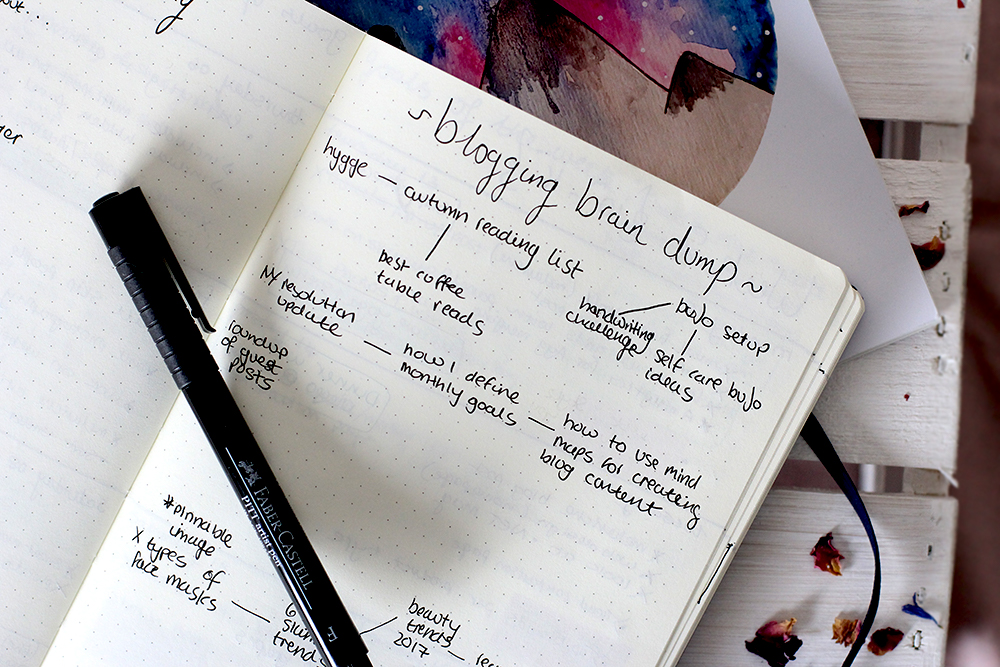 ~blogging brain dump~
hygge — autumn reading list
best coffee
table reads
handwriting
challenge
bujo setup
self care bujo
ideas
NY resolution
update
how I define
monthly goals
how to use mind
maps for creating
blog content
roundup
of guest
posts
*pinnable
image
X types of
face masks
trends
beauty
trends
2017
FABER CASTELL
PITT artist pen
F